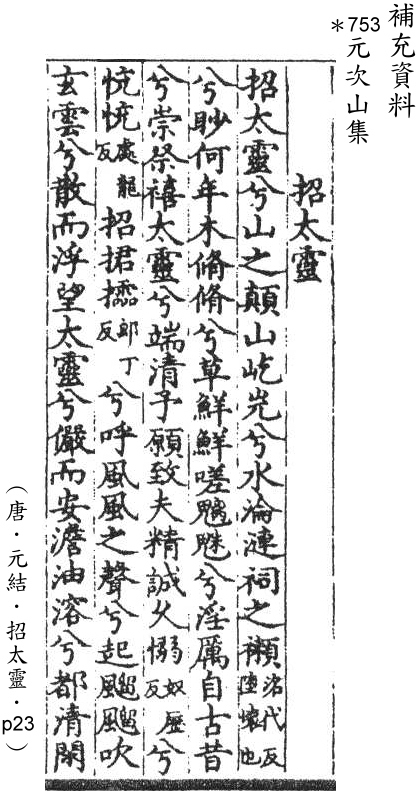 補充資料
*753元次山集
招太靈
招太靈兮山之顛山屹屼兮水淪漣祠之襰洛代反墮壞也
兮眇何年木脩脩兮草鮮鮮嗟魑魅兮淫厲自古昔
兮崇祭禧太靈兮端清予願致夫精誠久愵奴歷反兮
怳怳處龍反招捃郎丁反兮呼風風之聲兮起飀飀吹
玄雲兮散而浮望太靈兮儼而安澹油溶兮都清閑
（唐·元結·招太靈·p23）